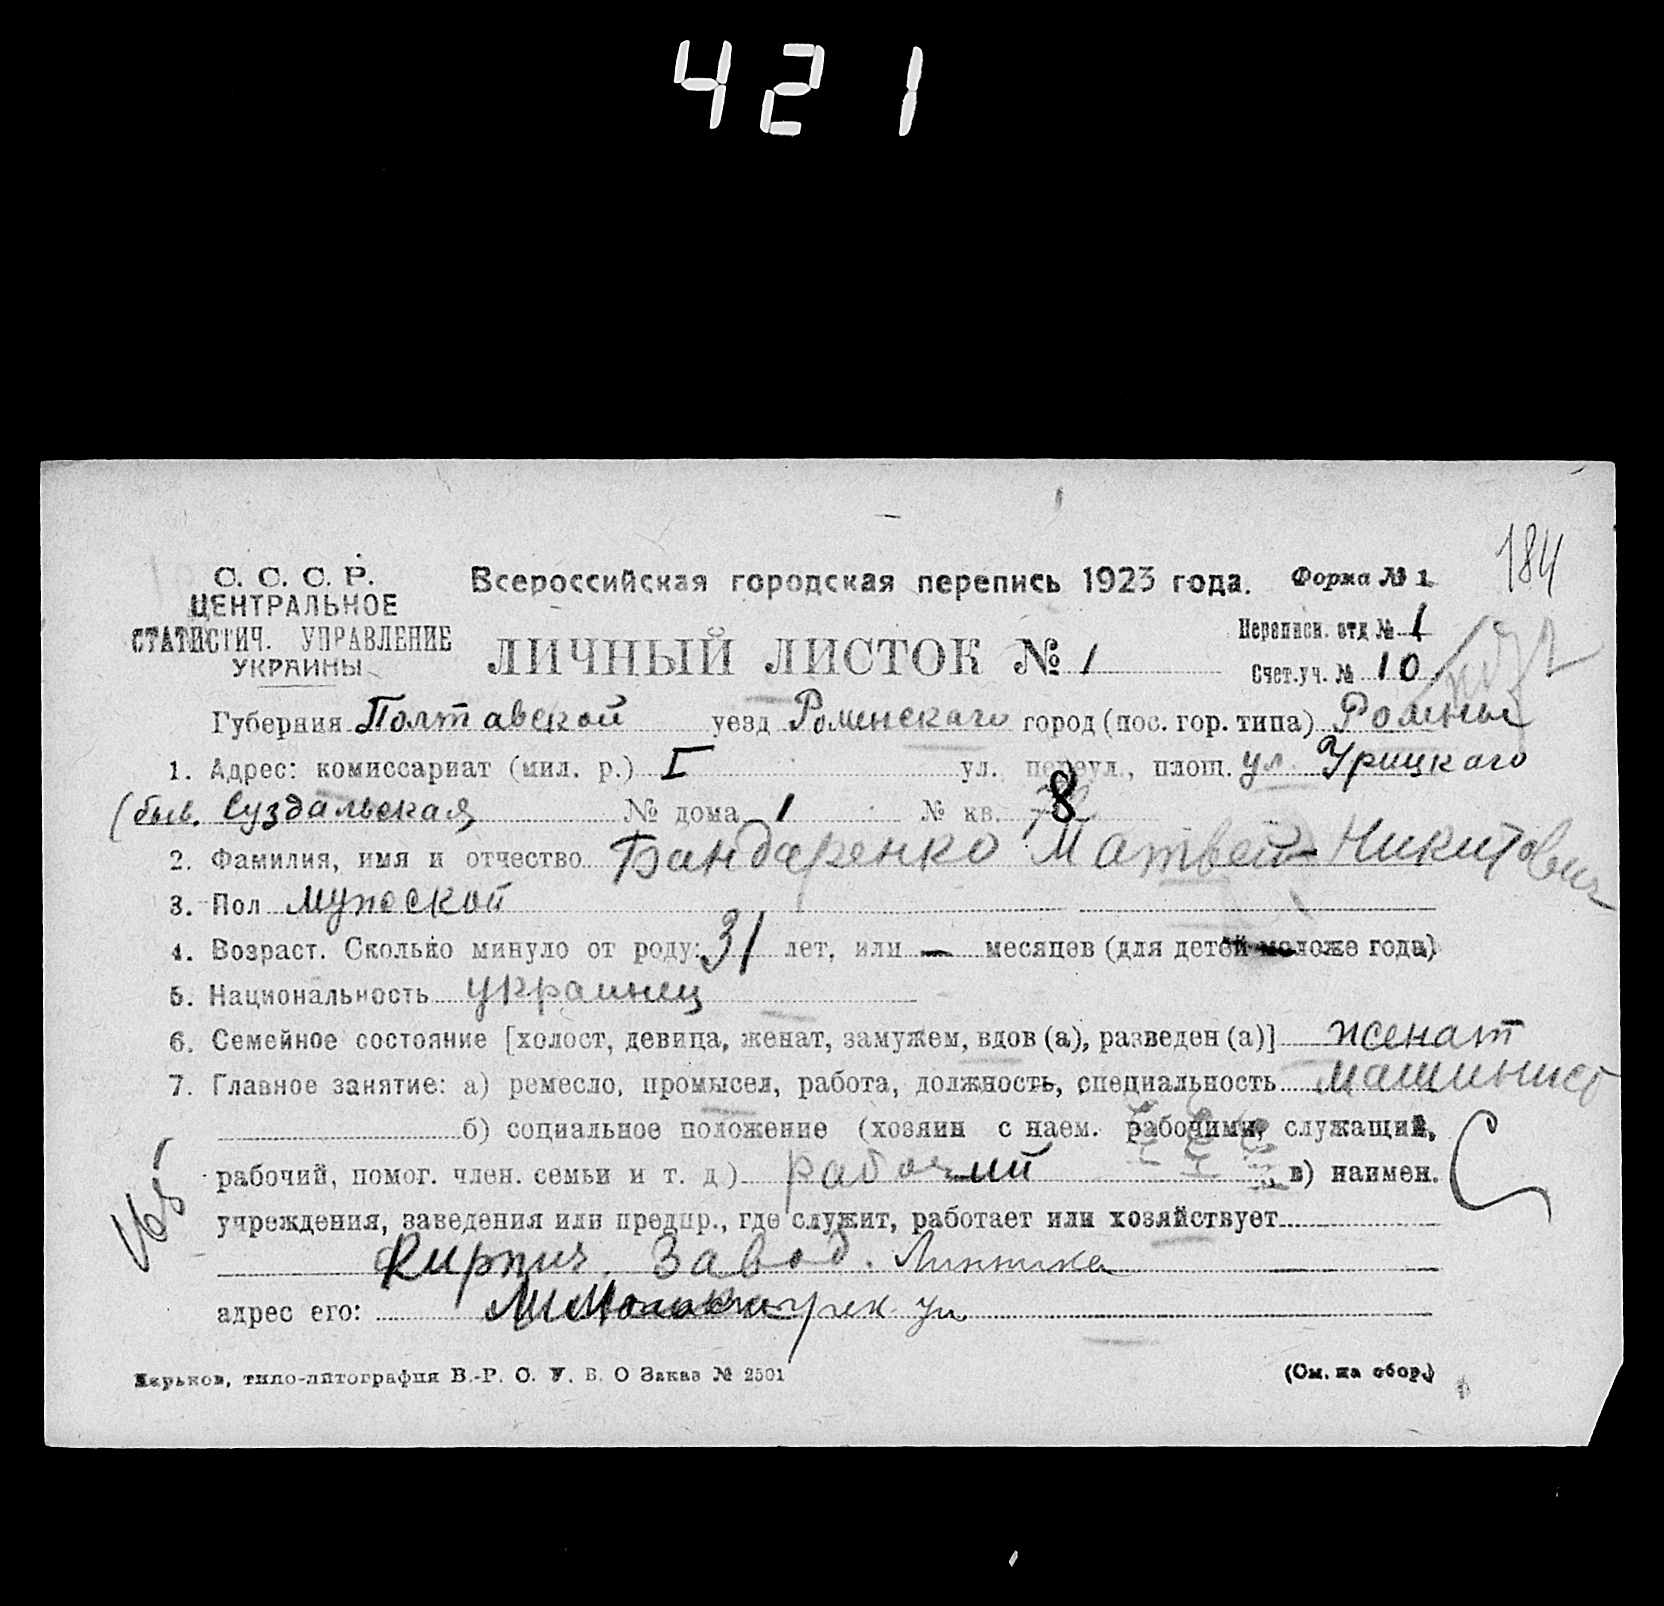 421
184
С. С. С. Р.
ЦЕНТРАЛЬНОЕ
СТАТИСТИЧ. УПРАВЛЕНИЕ
УКРАИНЫ
Всероссийская городская перепись 1923 года. Форма № 1
ЛИЧНЫЙ ЛИСТОК № 1
Переписн. отд № 1
Счет.уч. № 10
Губерния Полтавской уезд Роменскаго город (пос. гор. типа) Ромны
1. Адрес: комиссариат (мил. р.) I ул. переул., площ. ул. Урицкаго
(быв. Суздальская № дома 1 № кв. 8
2. Фамилия, имя и отчество Бандаренко Матвей Никитович
3. Пол мужской
4. Возраст. Сколько минуло от роду: 31 лет, или — месяцев (для детей моложе года)
5. Национальность украинец
6. Семейное состояние [холост, девица, женат, замужем, вдов (а), разведен (а)] женат
7. Главное занятие: а) ремесло, промысел, работа, должность, специальность машинист
б) социальное положение (хозяин с наем. рабочими, служащий,
рабочий, помог. член. семьи и т. д) рабочий в) наимен.
учреждения, заведения или предпр., где служит, работает или хозяйствует
Кирпич. Завод.
адрес его: ул
Харьков, типо-литография В.-Р. О. У. В. О Заказ № 2501
(См. на обор.)